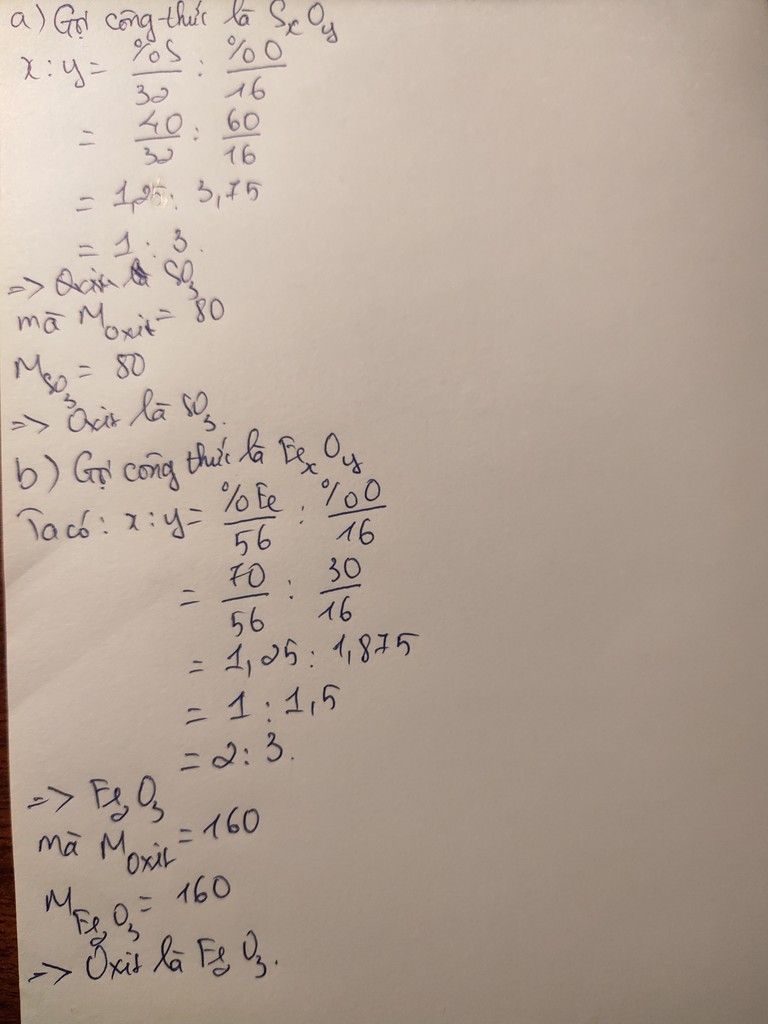 a) Gọi công thức là SxOy
x : y = %S/32 : %O/16
= 40/32 : 60/16
= 1,25 : 3,75
= 1 : 3.
=> Oxit là SO3
mà Moxit = 80
MSO3 = 80
=> Oxit là SO3.
b) Gọi công thức là FexOy
Ta có : x : y = %Fe/56 : %O/16
= 70/56 : 30/16
= 1,25 : 1,875
= 1 : 1,5
= 2 : 3.
=> Fe2O3
mà Moxit = 160
MFe2O3 = 160
=> Oxit là Fe2O3.